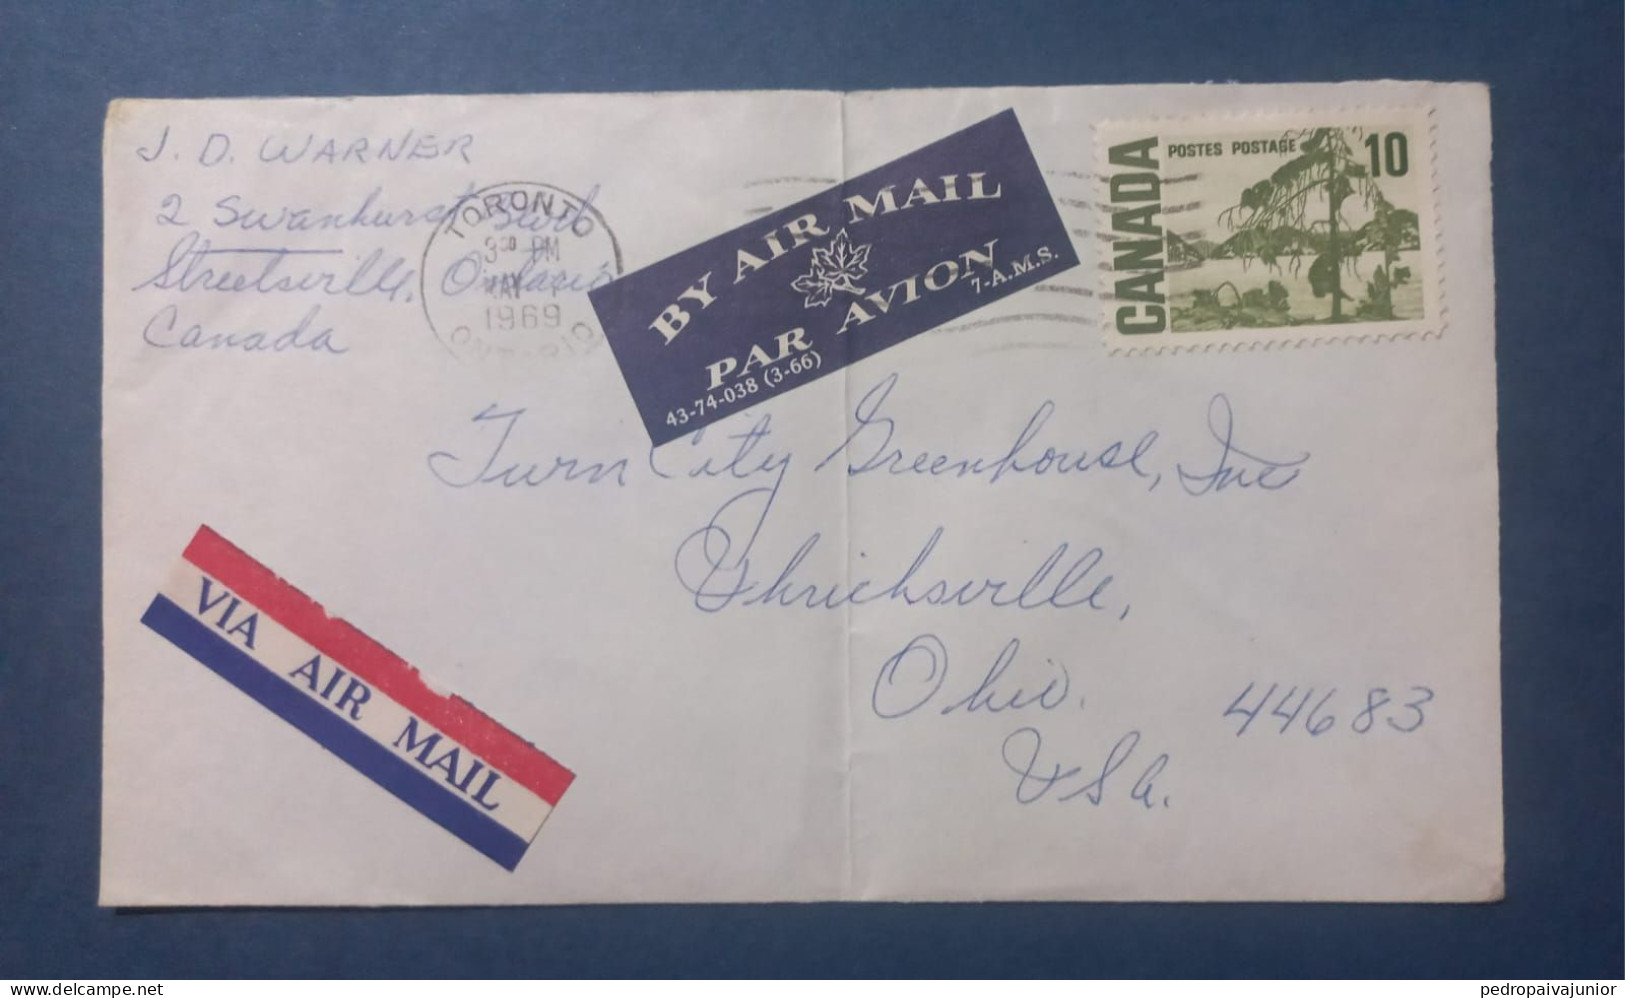 J. D. WARNER
2 Swanhurst Blvd
Streetsville, Ontario
Canada
TORONTO
3 30 PM
MAY 1
1969
ONTARIO
BY AIR MAIL
PAR AVION
7-A.M.S.
43-74-038 (3-66)
CANADA
POSTES POSTAGE
10
Twin City Greenhouse, Inc
Uhrichsville,
Ohio. 44683
USA.
VIA AIR MAIL
www.delcampe.net
pedropaivajunior